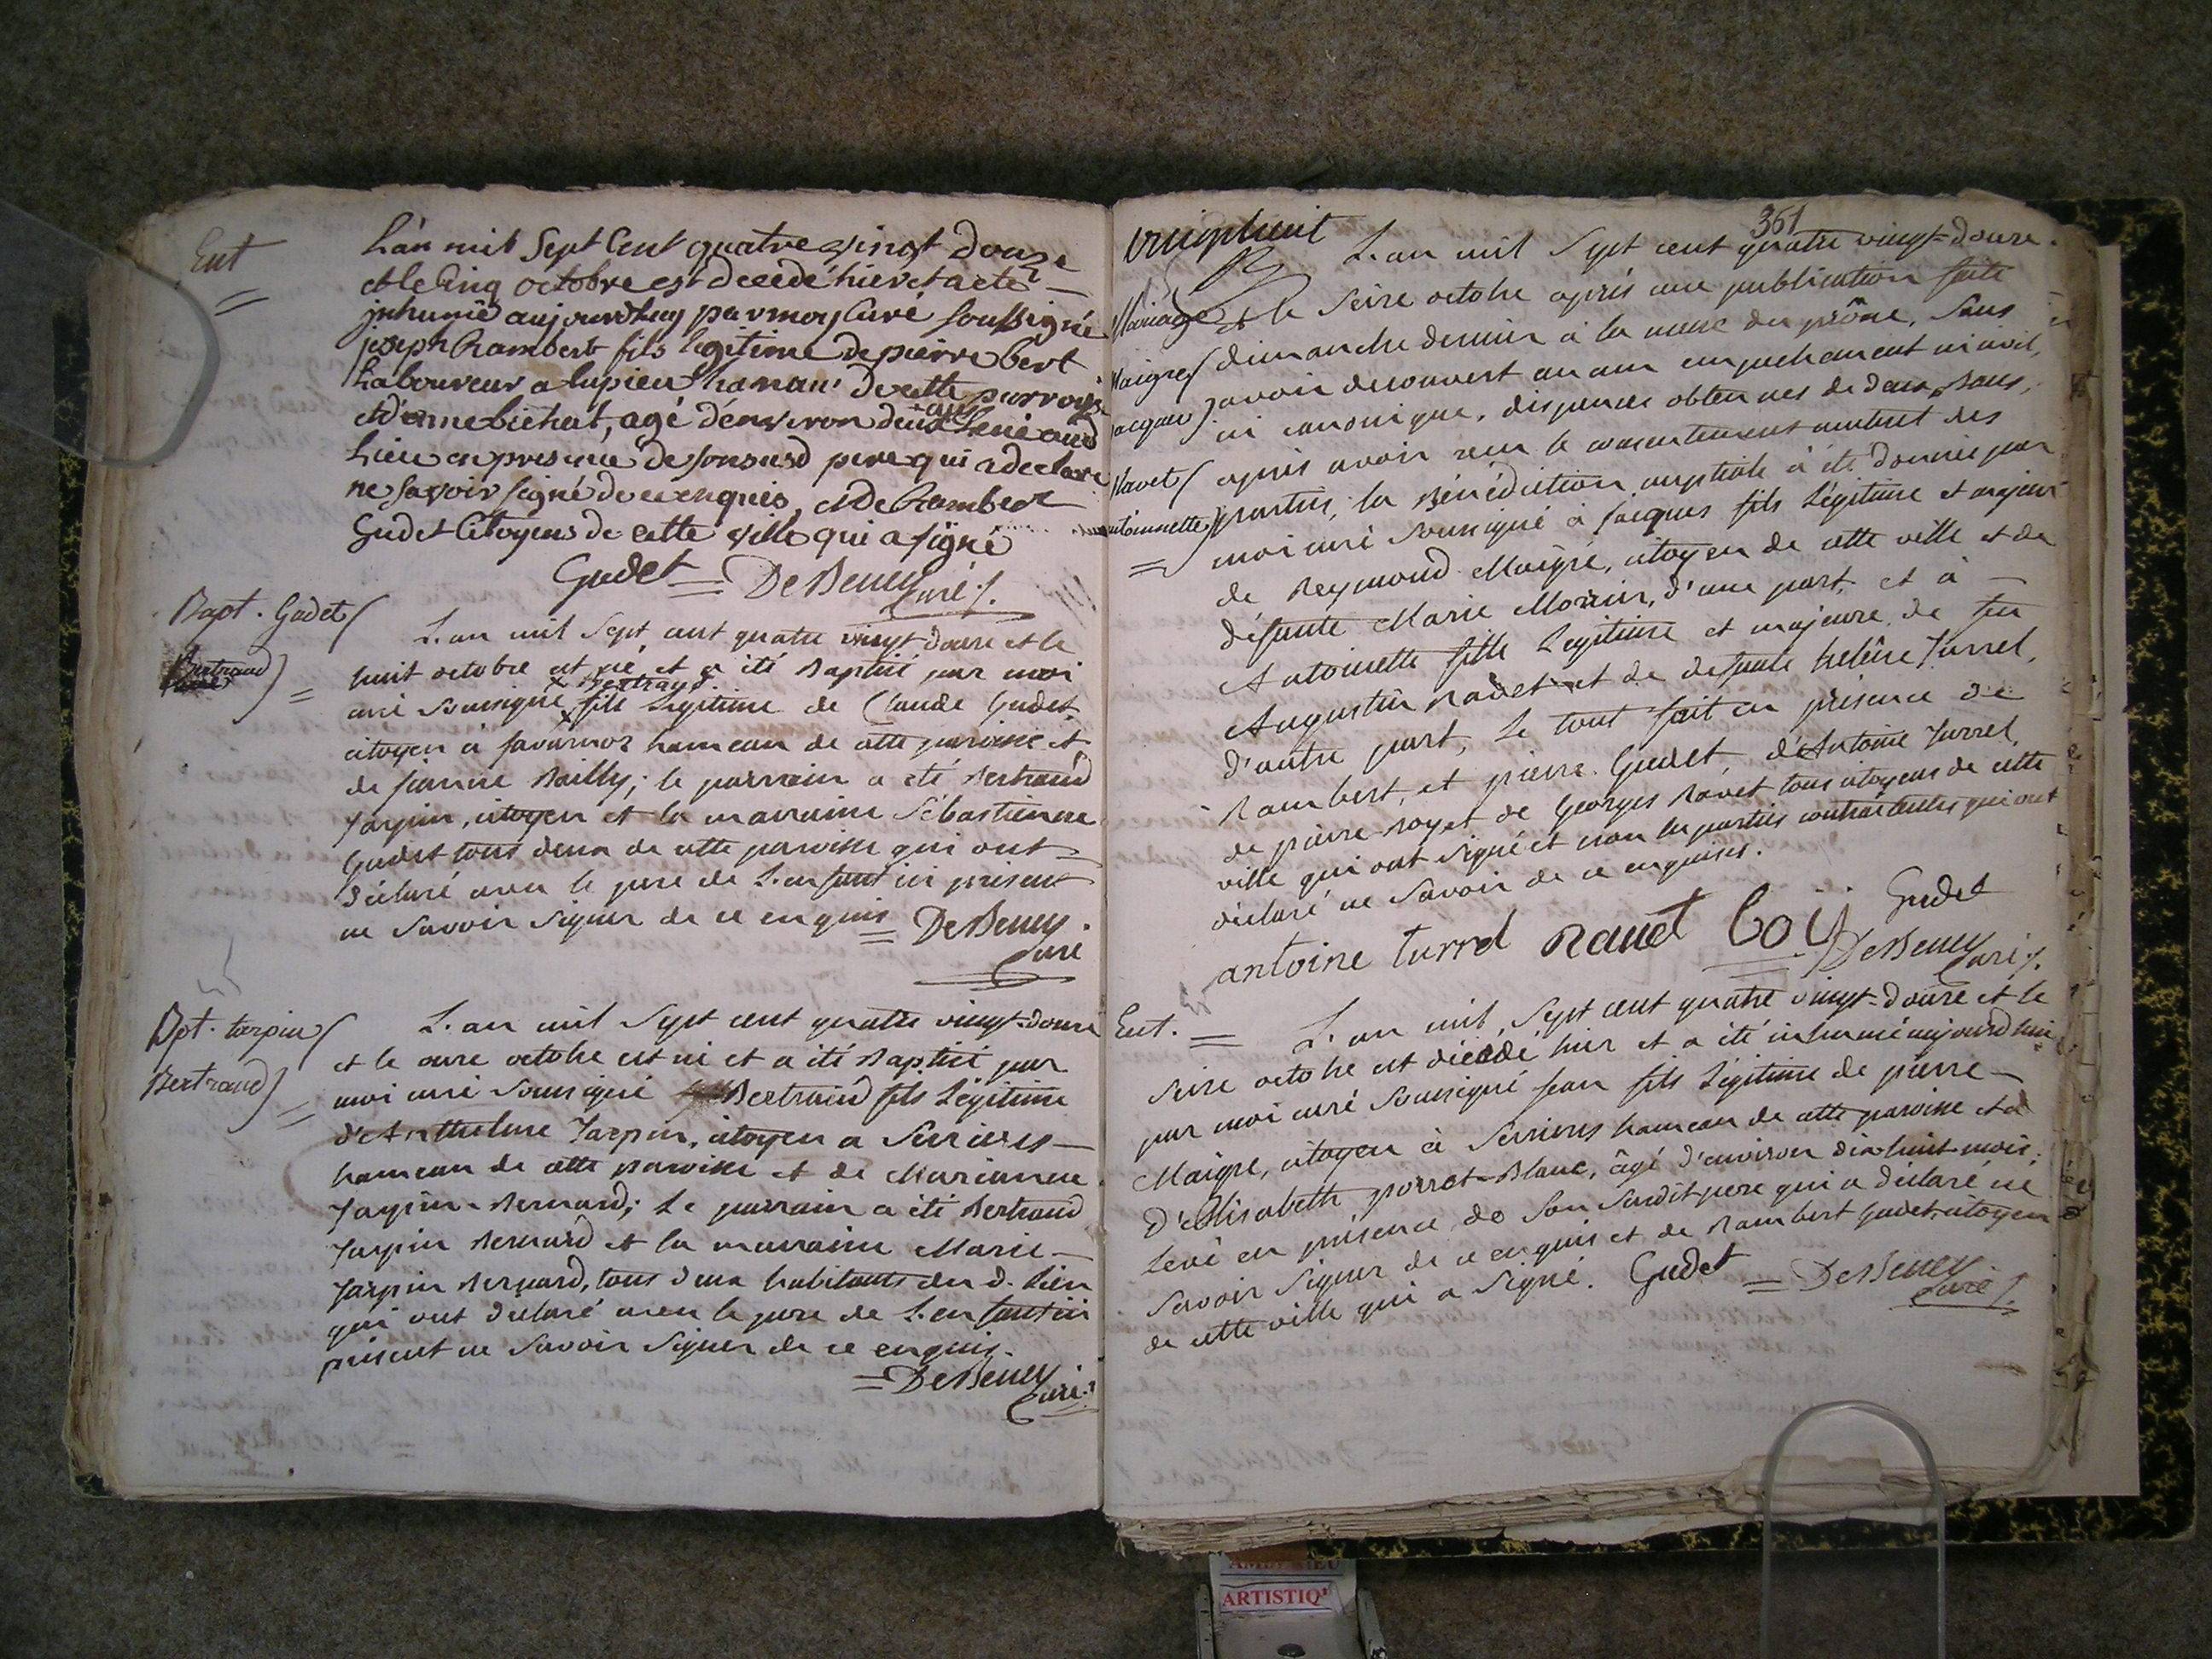 Ent
L'an mil Sept Cent quatre vingt douze
et le Cinq octobre est decedé hier et a eté
jnhumé aujourdhuy par moy Curé Soussigné
joseph Rambert fils legitime de pierre bert
Laboureur a lupieu hamau de cette parroisse
et d'anne bichat, agé d'environ deux ans Levé aud
Lieu en presence de son susd pere qui a declaré
ne savoir signé de ce enquis, et de Rambert
Gudet Citoyens de cette ville qui a signé
Gudet = DeBeney Curé
Bapt. Gudet
Bertrand
L'an mil Sept cent quatre vingt-douze et le
huit octobre est né et a été Baptisé par moi
curé Soussigné x Bertrand fils Légitime de Claude Gudet,
citoyen à Javornoz hameau de cette paroisse et
de jeanne Bailly; le parrain a été Bertrand
Tarpin, citoyen et la marraine Sébastienne
Gudet tous deux de cette paroisse qui ont
déclaré avec le pere de L'enfant ici présent
ne Savoir Signer de ce enquis = DeBeney
Curé
Bpt. tarpin
Bertrand
L'an mil Sept cent quatre vingt-douze
et le onze octobre est né et a été Baptisé par
moi curé Soussigné Bertrand fils Légitime
d'Anthelme Tarpin, citoyen a Serrieres
hameau de cette paroisse et de Marianne
Tarpin-Bernard; Le parrain a été Bertrand
Tarpin Bernard et la marraine Marie
Tarpin Bernard, tous deux habitants du d. Lieu
qui ont déclaré avec le pere de L'enfant ici
présent ne Savoir Signer de ce enquis.
= DeBeney
Curé
vingthuit
361
Mariage
Maigre
jacques
Ravet
antoinette
L'an mil Sept cent quatre vingt-douze
et le Seize octobre après une publication faite
dimanche dernier à la messe du prône, Sans
avoir découvert aucun empechement ni civil,
ni canonique, dispenses obtenues de deux Bans,
après avoir reçu le consentement mutuel des
parties, la Bénédiction nuptiale à été donnée par
moi curé Soussigné à Jacques fils Légitime et majeur
de Reymond Maigre, citoyen de cette ville et de
défunte Marie Morin, d'une part, et à
Antoinette fille Légitime et majeure de feu
Augustin Ravet et de defunte helène Turrel,
d'autre part, Le tout fait en présence de
Rambert, et pierre Gudet, d'Antoine Turrel,
de pierre Roy et de Georges Ravet tous citoyens de cette
ville qui ont Signé et non les parties contractantes qui ont
déclaré ne Savoir de ce enquises.
Gudet
antoine turrel Ravet Roy DeBeney
Curé
Ent.
L'an mil Sept cent quatre vingt-douze et le
Seize octobre est décédé hier et a été inhumé aujourdhui
par moi curé Soussigné jean fils Légitime de pierre
Maigre, citoyen à Serrieres hameau de cette paroisse et
d'Elisabeth porret-Blanc, âgé d'environ dix huit mois,
Levé en présence de Son Susdit pere qui a déclaré ne
Savoir Signer de ce enquis et de Rambert Gudet citoyen
de cette ville qui a Signé. Gudet = DeBeney
Curé
ARTISTIQ'